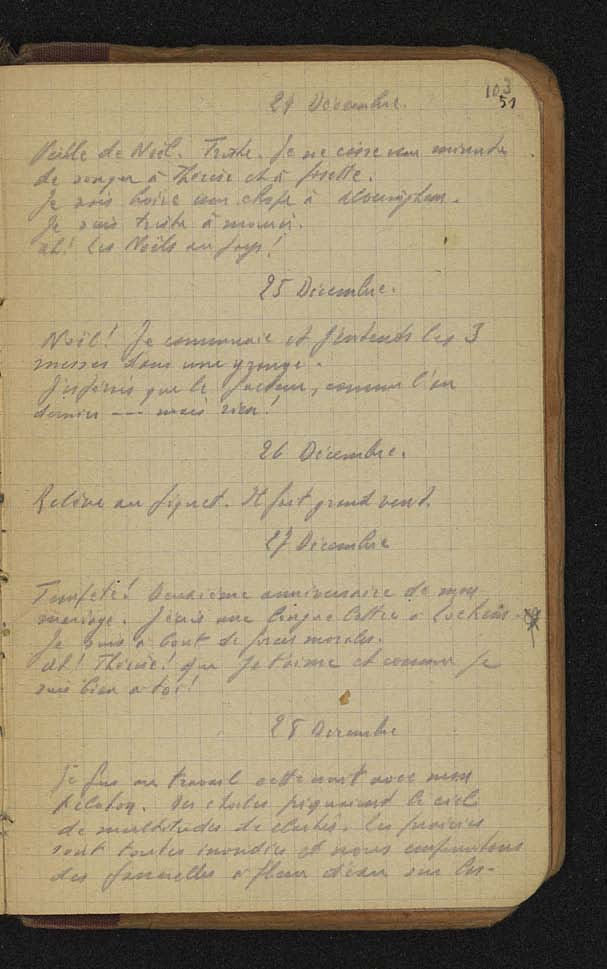 103
51
24 Décembre.
Veille de Noël. Triste. Je ne cesse une minute
de songer à Thérèse et à Josette.
Je vais boire une chope à
Je suis triste à mourir.
Ah! Les Noëls au pays!
25 Décembre.
Noël! Je communie et j'entends les 3
messes dans une grange.
J'espérais que le facteur, comme l'an
dernier --- mais rien!
26 Décembre.
Relève au piquet. Il fait grand vent.
27 Décembre
Tempête! Deuxième anniversaire de mon
mariage. J'écris une longue lettre à
Je suis à bout de forces morales.
Ah! Thérèse! que je t'aime et comme je
suis bien à toi!
28 Décembre
Je fus au travail cette nuit avec mon
peloton. Des étoiles piquaient le ciel
de multitudes de clartés. Les prairies
sont toutes inondées et nous empruntons
des passerelles à fleur d'eau sur les-